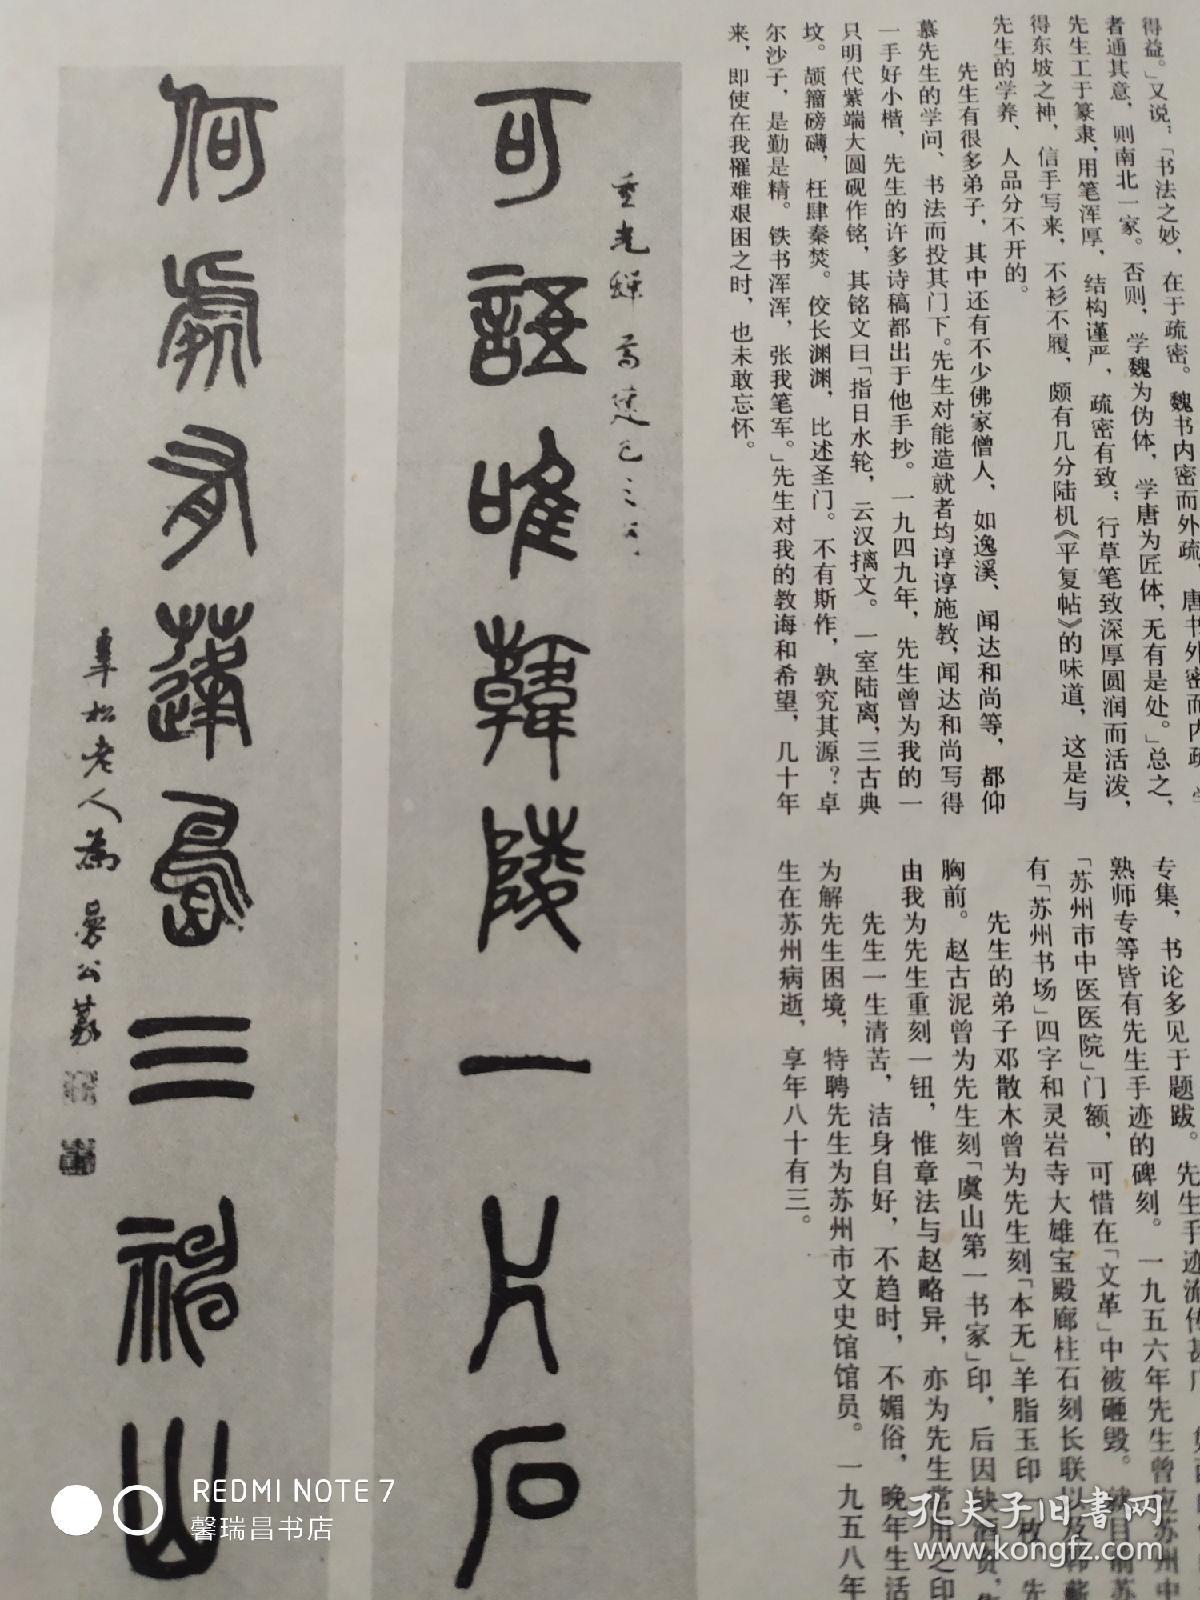 得益。」又说:「书法之妙,在于疏密。魏书内密而外疏,唐书外密而内疏,学
者通其意,则南北一家。否则,学魏为伪体,学唐为匠体,无有是处。」总之,
先生工于篆隶,用笔浑厚,结构谨严,疏密有致;行草笔致深厚圆润而活泼,
得东坡之神,信手写来,不衫不履,颇有几分陆机《平复帖》的味道,这是与
先生的学养、人品分不开的。
先生有很多弟子,其中还有不少佛家僧人,如逸溪、闻达和尚等,都仰
慕先生的学问、书法而投其门下。先生对能造就者均谆谆施教,闻达和尚写得
一手好小楷,先生的许多诗稿都出于他手抄。一九四九年,先生曾为我的一
只明代紫端大圆砚作铭,其铭文曰「指日水轮,云汉摛文。一室陆离,三古典
坟。颉籀磅礴,枉肆秦焚。佼长渊渊,比述圣门。不有斯作,孰究其源?卓
尔沙子,是勤是精。铁书浑浑,张我笔军。」先生对我的教诲和希望,几十年
来,即使在我罹难艰困之时,也未敢忘怀。
专集,书论多见于题跋。先生手迹流传甚广
熟师专等皆有先生手迹的碑刻。一九五六年先生曾应苏州中
「苏州市中医医院」门额,可惜在「文革」中被砸毁。就目前苏
有「苏州书场」四字和灵岩寺大雄宝殿廊柱石刻长联以及
先生的弟子邓散木曾为先生刻「本无」羊脂玉印一枚,先
胸前。赵古泥曾为先生刻「虞山第一书家」印,后因缺酒资,
由我为先生重刻一钮,惟章法与赵略异,亦为先生常用之印
先生一生清苦,洁身自好,不趋时,不媚俗,晚年生活
为解先生困境,特聘先生为苏州市文史馆馆员。一九五八年
生在苏州病逝,享年八十有三。
重光
可語唯韓陵一片石
何處有蓬島三神山
老人為
REDMI NOTE 7
馨瑞昌书店
孔夫子旧书网
www.kongfz.com